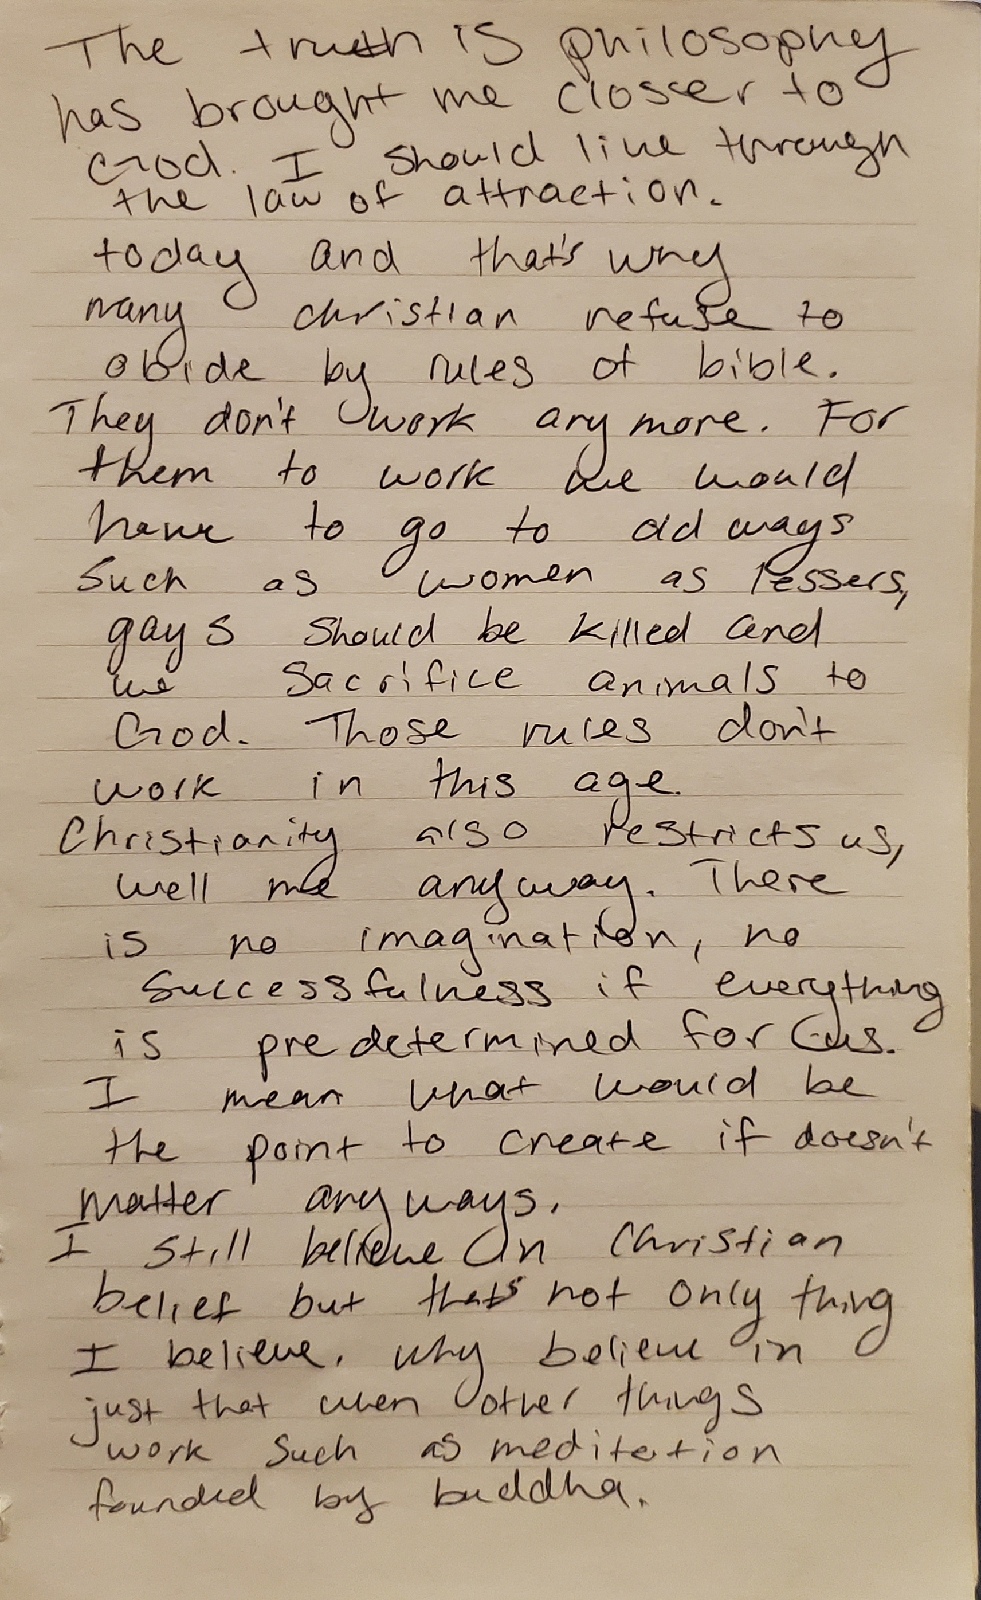 The truth is philosophy
has brought me closer to
God. I should live through
the law of attraction.
today and that's why
many christian refuse to
abide by rules of bible.
They don't work anymore. For
them to work we would
have to go to old ways
Such as women as lessers,
gays should be killed and
we sacrifice animals to
God. Those rules don't
work in this age.
Christianity also restricts us,
well me anyway. There
is no imagination, no
successfulness if everything
is predetermined for us.
I mean what would be
the point to create if doesn't
matter anyways.
I still believe in Christian
belief but that's not only thing
I believe. Why believe in
just that when other things
work such as meditation
founded by buddha.